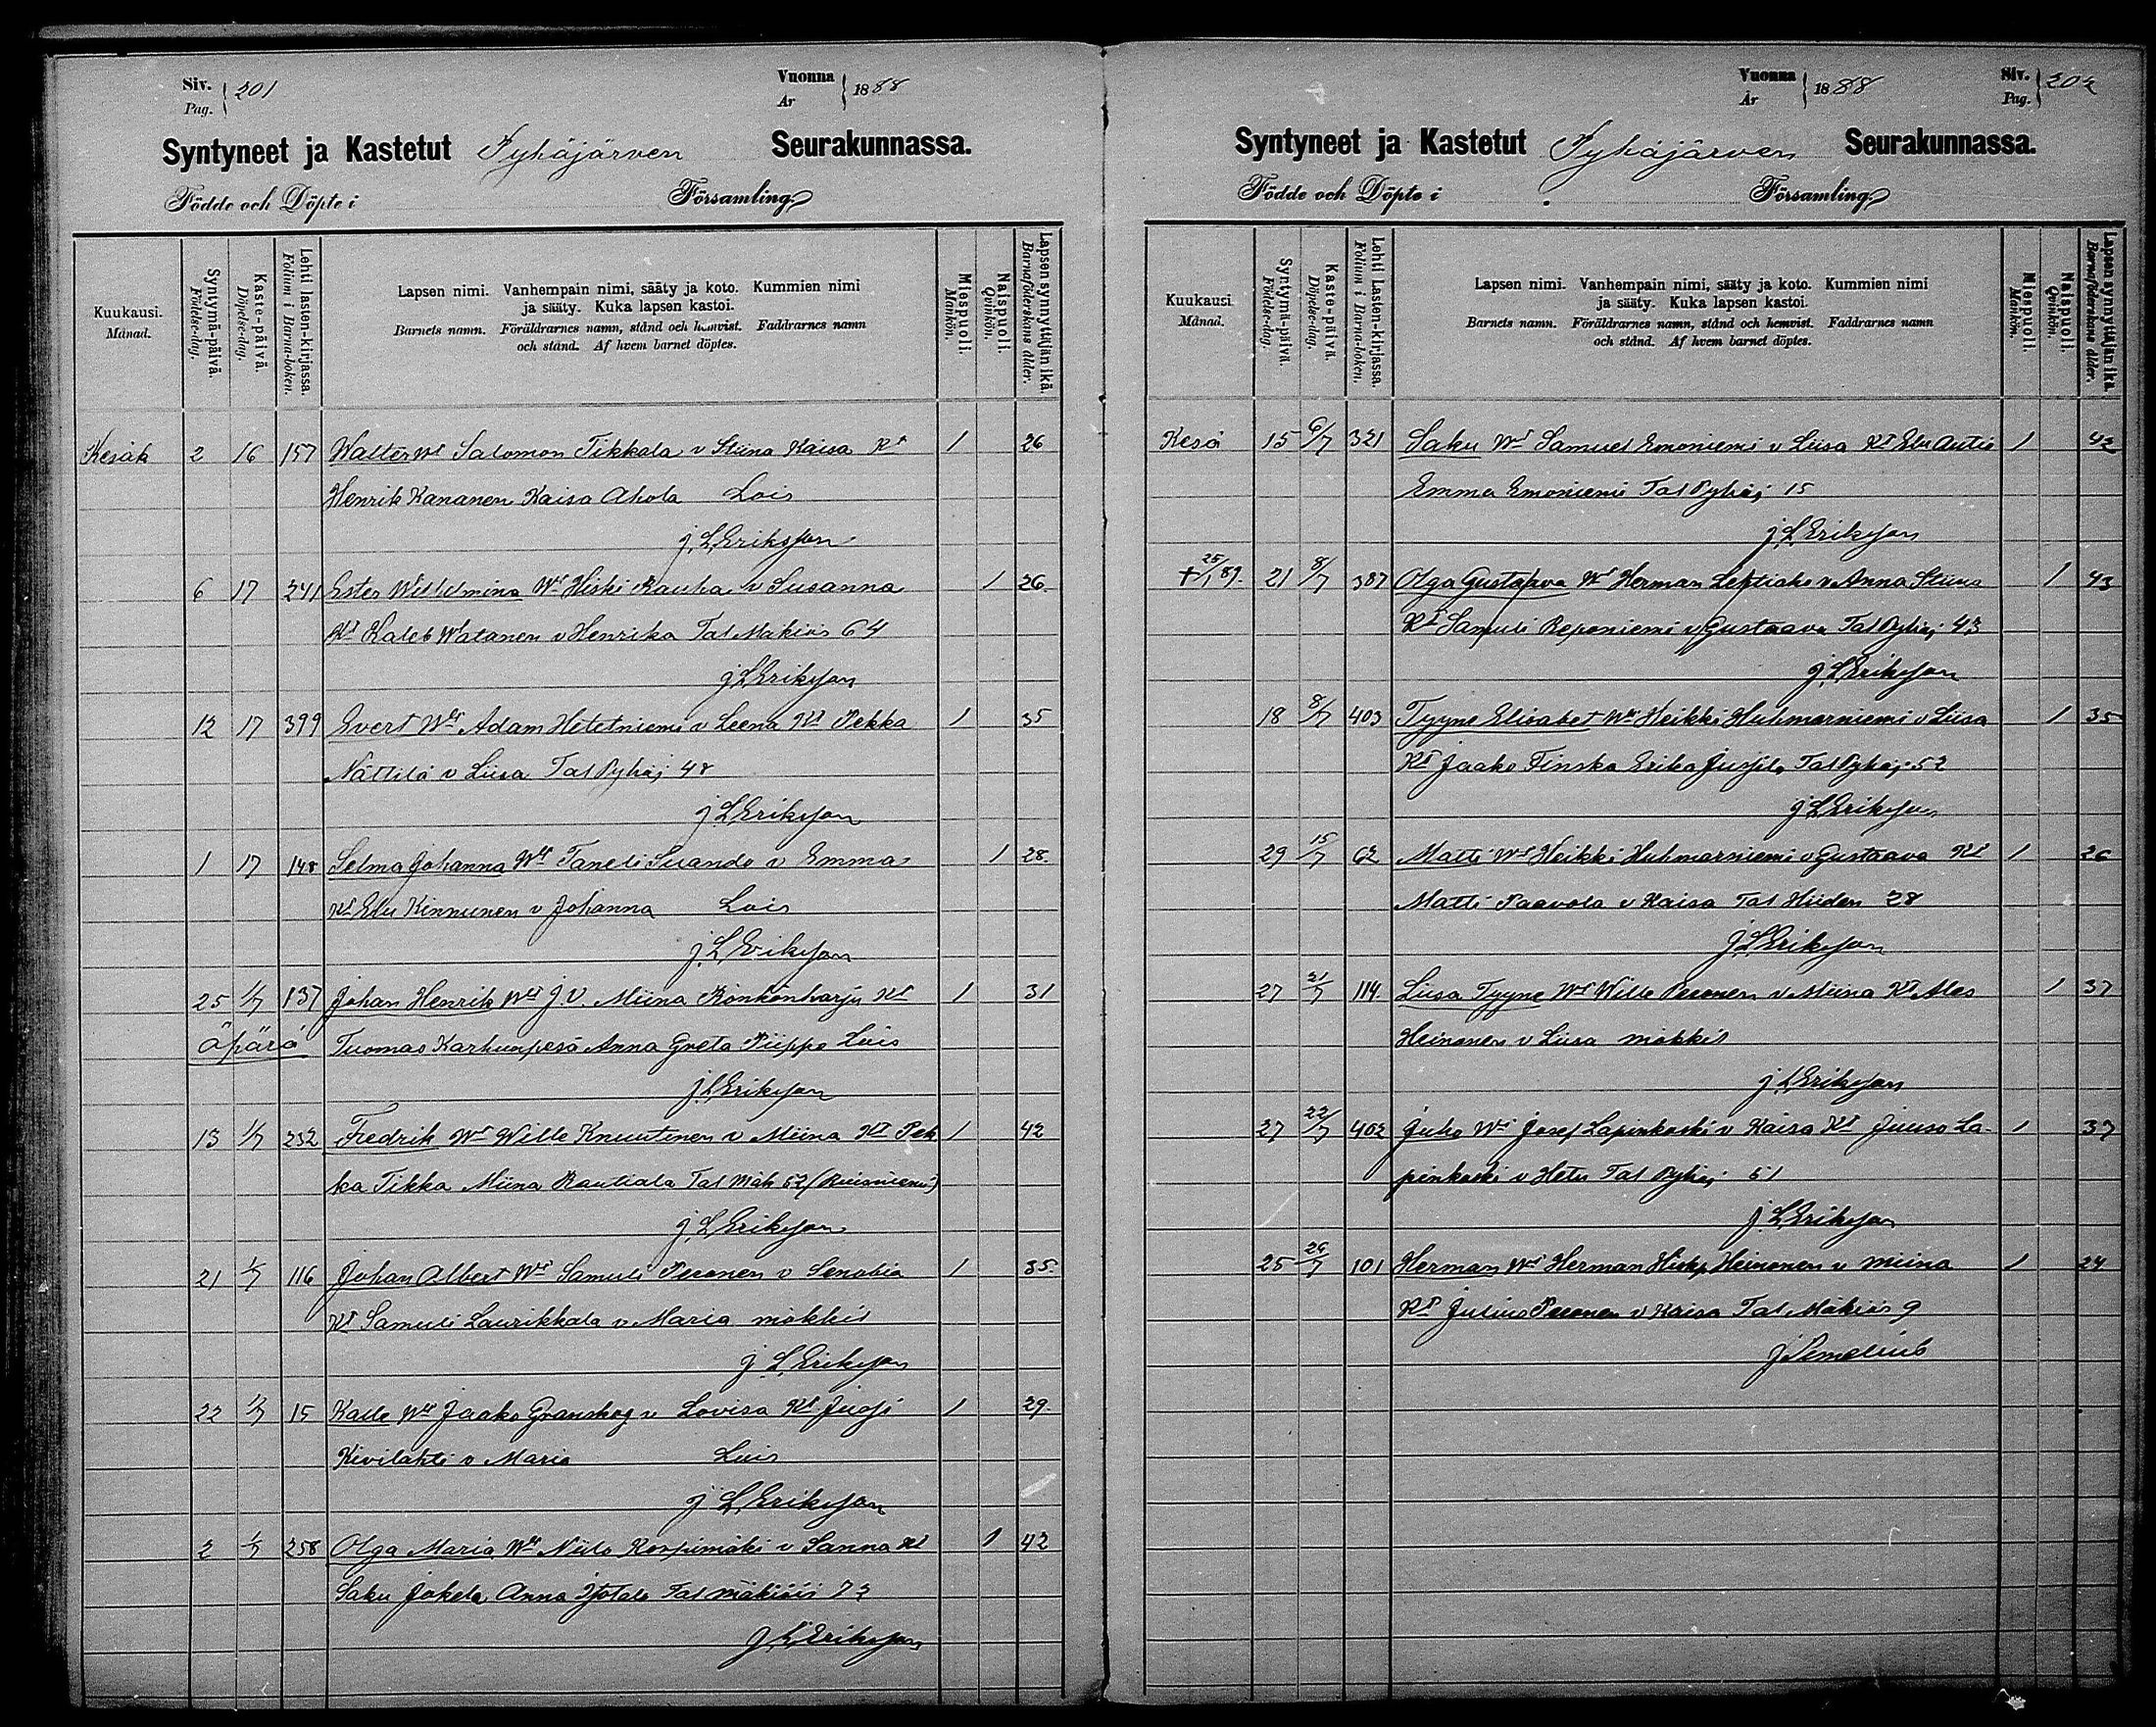 Siv. Pag. 201 Vuonna År 1888
Syntyneet ja Kastetut Pyhäjärven Seurakunnassa.
Födde och Döpte i Församling.
Kuukausi. Månad.
Syntymä-päivä. Födelse-dag.
Kaste-päivä. Döpelse-dag.
Lehti lasten-kirjassa. Folium i Barna-boken.
Lapsen nimi. Vanhempain nimi, sääty ja koto. Kummien nimi
ja sääty. Kuka lapsen kastoi.
Barnets namn. Föräldrarnes namn, stånd och hemvist. Faddrarnes namn
och stånd. Af hvem barnet döptes.
Miespuoli. Mankön.
Naispuoli. Qvinkön.
Lapsen synnyttäjän ikä. Barnaföderskans ålder.
Kesäk 2 16 157 Walter Wt Salomon Tikkala v Stiina Kaisa Kt 1 26
Henrik Kananen Kaisa Ahola Lois
J. L. Eriksson
6 17 241 Ester Wilhelmina Wt Hiski Rauha v Susanna 1 26
Kt Kaleb Watanen v Henrika Tal Makiöis 64
J. L. Eriksson
12 17 399 Evert Wt Adam Hetetniemi v Leena Kt Pekka 1 35
Nättilä v Liisa Tal Pyhäj 48
J. L. Eriksson
1 17 148 Selma Johanna Wt Taneli Suando v Emma 1 28
Kt Elu Kinnunen v Johanna Lois
J. L. Eriksson
25 1/7 137 Johan Henrik Wt J.V. Miina Rönkönharju Kt 1 31
Äpärä Tuomas Karhunpesä Anna Greta Piippo Lois
J. L. Eriksson
13 1/7 232 Fredrik Wt Wille Knuutinen v Miina Kt Pek 1 42
ka Tikka Miina Rautiala Tal Mäk 62 (Ruisniemi)
J. L. Eriksson
21 1/7 116 Johan Albert Wt Samuli Pesonen v Senobia 1 35
Kt Samuli Laurikkala v Maria mökkil
J. L. Eriksson
22 1/7 15 Kalle Wt Jaako Granskog v Lovisa Kt Juosi 1 29
Kivilahti v Maria Lois
J. L. Eriksson
2 1/7 258 Olga Maria Wt Niilo Korpimäki v Sanna Kt 1 42
Saku Jokela Anna Tal mäkiöis
J. L. Eriksson
Vuonna År 1888 Siv. Pag. 202
Syntyneet ja Kastetut Pyhäjärven Seurakunnassa.
Födde och Döpte i Församling.
Kuukausi. Månad.
Syntymä-päivä. Födelse-dag.
Kaste-päivä. Döpelse-dag.
Lehti Lasten-kirjassa. Folium i Barna-boken.
Lapsen nimi. Vanhempain nimi, sääty ja koto. Kummien nimi
ja sääty. Kuka lapsen kastoi.
Barnets namn. Föräldrarnes namn, stånd och hemvist. Faddrarnes namn
och stånd. Af hvem barnet döptes.
Miespuoli. Mankön.
Naispuoli. Qvinkön.
Lapsen synnyttäjän ikä. Barnaföderskans ålder.
Kesä 15 6/7 321 Saku Wt Samuel Emoniemi v Liisa Kt Elu Autio 1 42
Emma Emoniemi Tal Pyhäj 15
J. L. Eriksson
† 25/1 89. 21 8/7 387 Olga Gustaava Wt Herman Lehtiaho v Anna Stiina 1 43
Kt Samuli Reponiemi v Gustaava Tal Pyhäj 43
J. L. Eriksson
18 8/7 403 Tyyne Elisabet Wt Heikki Huhmarniemi v Liisa 1 35
Kt Jaako Finska Erika Tal Pyhäj 52
J. L. Eriksson
29 15/7 62 Matti Wt Heikki Huhmarniemi v Gustaava Kt 1 26
Matti Paavola v Kaisa Tal Hiiden 28
J. L. Eriksson
27 21/7 114. Liisa Tyyne Wt Wille Pesonen v Miina Kt Ales 1 37
Heinonen v Liisa mökkil
J. L. Eriksson
27 22/7 402 Juho Wt Josef Lapinkoski v Kaisa Kt Juuso La- 1 37
pinkoski v Hetu Tal Pyhäj 51
J. L. Eriksson
25 26/7 101 Herman Wt Herman Heinonen v Miina 1 24
Kt Julius Pesonen v Kaisa Tal Mäkiöis 9